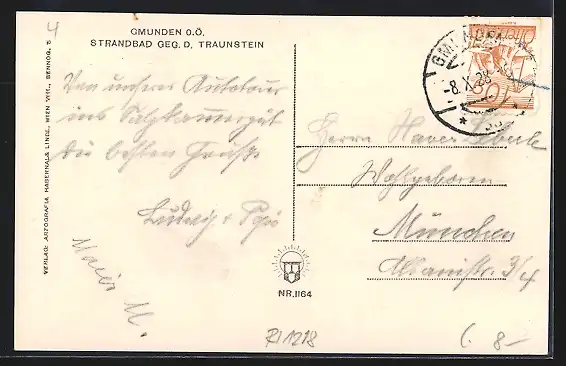 4
GMUNDEN O.Ö.
STRANDBAD GEG. D. TRAUNSTEIN
Von unserer Autotour
ins Salzkammergut
die besten Grüße
Ludwig +
Maier M.
VERLAG: ARTOGRAFIA HABERNALS LINDE, WIEN VIII., BENNOG. 5
GMUNDEN
-8.X.28
Österreich
10
Herrn Xaver
Wohlgeboren
München
NR. 1164
RI 1218
8-